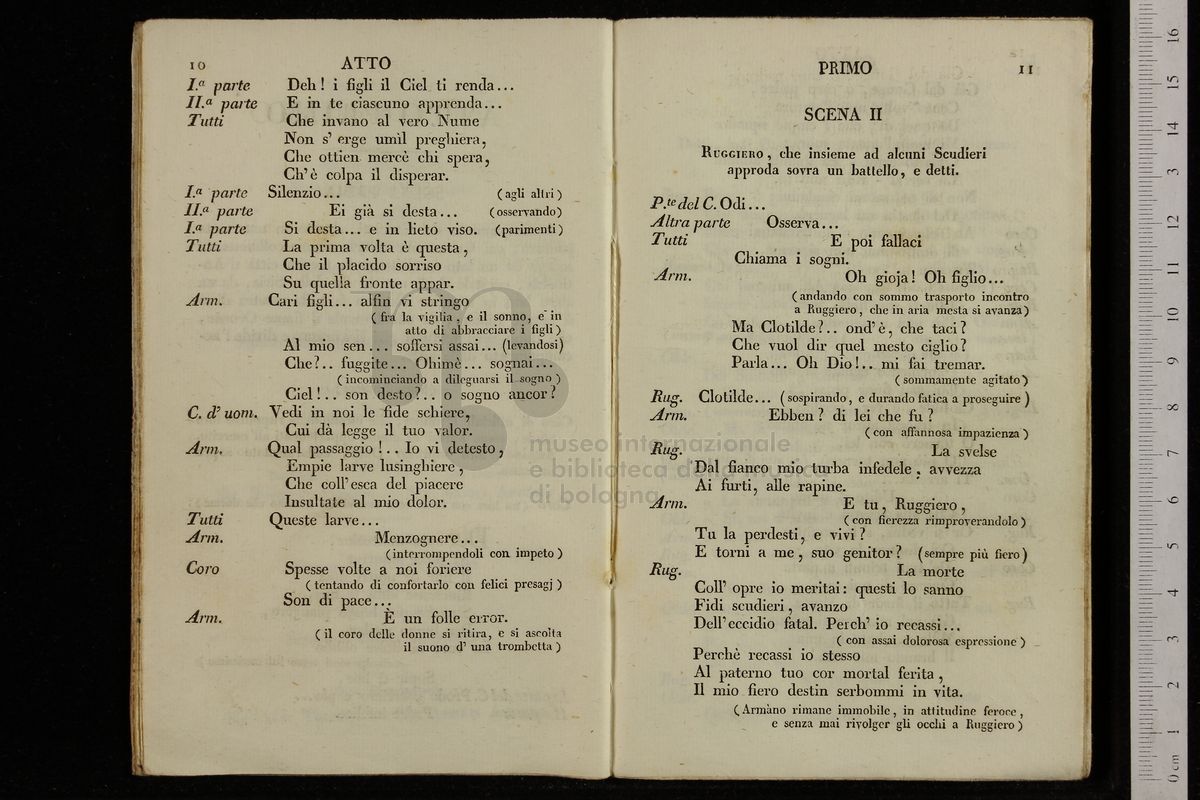 10 ATTO
I.ª parte Deh! i figli il Ciel ti renda...
II.ª parte E in te ciascuno apprenda...
Tutti Che invano al vero Nume
Non s' erge umìl preghiera,
Che ottien mercè chi spera,
Ch' è colpa il disperar.
I.ª parte Silenzio... (agli altri)
II.ª parte Ei già si desta... (osservando)
I.ª parte Si desta... e in lieto viso. (parimenti)
Tutti La prima volta è questa,
Che il placido sorriso
Su quella fronte appar.
Arm. Cari figli... alfin vi stringo
(fra la vigilia, e il sonno, e in
atto di abbracciare i figli)
Al mio sen... soffersi assai... (levandosi)
Che?.. fuggite... Ohimè... sognai...
(incominciando a dileguarsi il sogno)
Ciel!.. son desto?.. o sogno ancor?
C. d' uom. Vedi in noi le fide schiere,
Cui dà legge il tuo valor.
Arm. Qual passaggio!.. Io vi detesto,
Empie larve lusinghiere,
Che coll' esca del piacere
Insultate al mio dolor.
Tutti Queste larve...
Arm. Menzognere...
(interrompendoli con impeto)
Coro Spesse volte a noi foriere
(tentando di confortarlo con felici presagj)
Son di pace...
Arm. È un folle error.
(il coro delle donne si ritira, e si ascolta
il suono d' una trombetta)
PRIMO 11
SCENA II
RUGGIERO, che insieme ad alcuni Scudieri
approda sovra un battello, e detti.
P.te del C. Odi...
Altra parte Osserva...
Tutti E poi fallaci
Chiama i sogni.
Arm. Oh gioja! Oh figlio...
(andando con sommo trasporto incontro
a Ruggiero, che in aria mesta si avanza)
Ma Clotilde?.. ond' è, che taci?
Che vuol dir quel mesto ciglio?
Parla... Oh Dio!.. mi fai tremar.
(sommamente agitato)
Rug. Clotilde... (sospirando, e durando fatica a proseguire)
Arm. Ebben? di lei che fu?
(con affannosa impazienza)
Rug. La svelse
Dal fianco mio turba infedele, avvezza
Ai furti, alle rapine.
Arm. E tu, Ruggiero,
(con fierezza rimproverandolo)
Tu la perdesti, e vivi?
E torni a me, suo genitor? (sempre più fiero)
Rug. La morte
Coll' opre io meritai: questi lo sanno
Fidi scudieri, avanzo
Dell' eccidio fatal. Perch' io recassi...
(con assai dolorosa espressione)
Perchè recassi io stesso
Al paterno tuo cor mortal ferita,
Il mio fiero destin serbommi in vita.
(Armàno rimane immobile, in attitudine feroce,
e senza mai rivolger gli occhi a Ruggiero)
museo internazionale
e biblioteca della musica
di bologna
0 cm 1 2 3 4 5 6 7 8 9 10 11 12 13 14 15 16